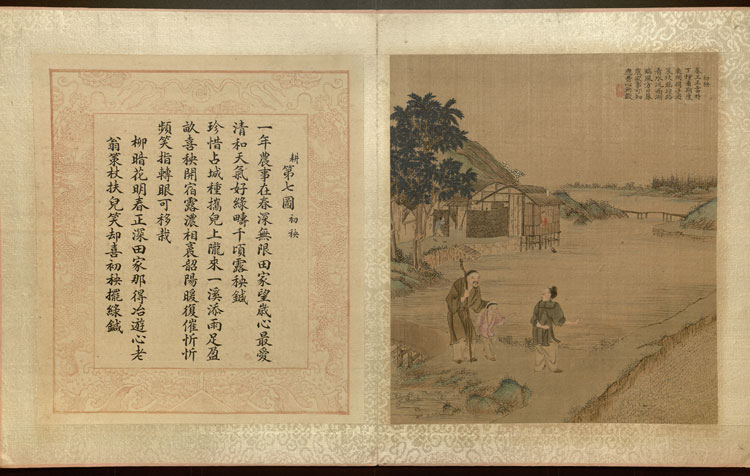 耕第七圖初秧
一年農事在春深無限田家望歲心最愛
清和天氣好綠疇千頃露秧鍼
珍惜占城種攜兒上隴來一溪添雨足盈
畝喜秧開宿露濃相裛韶陽暖復催忻忻
頻笑指轉眼可移栽
柳暗花明春正深田家那得冶遊心老
翁策杖扶兒笑却喜初秧擺綠鍼
初秧